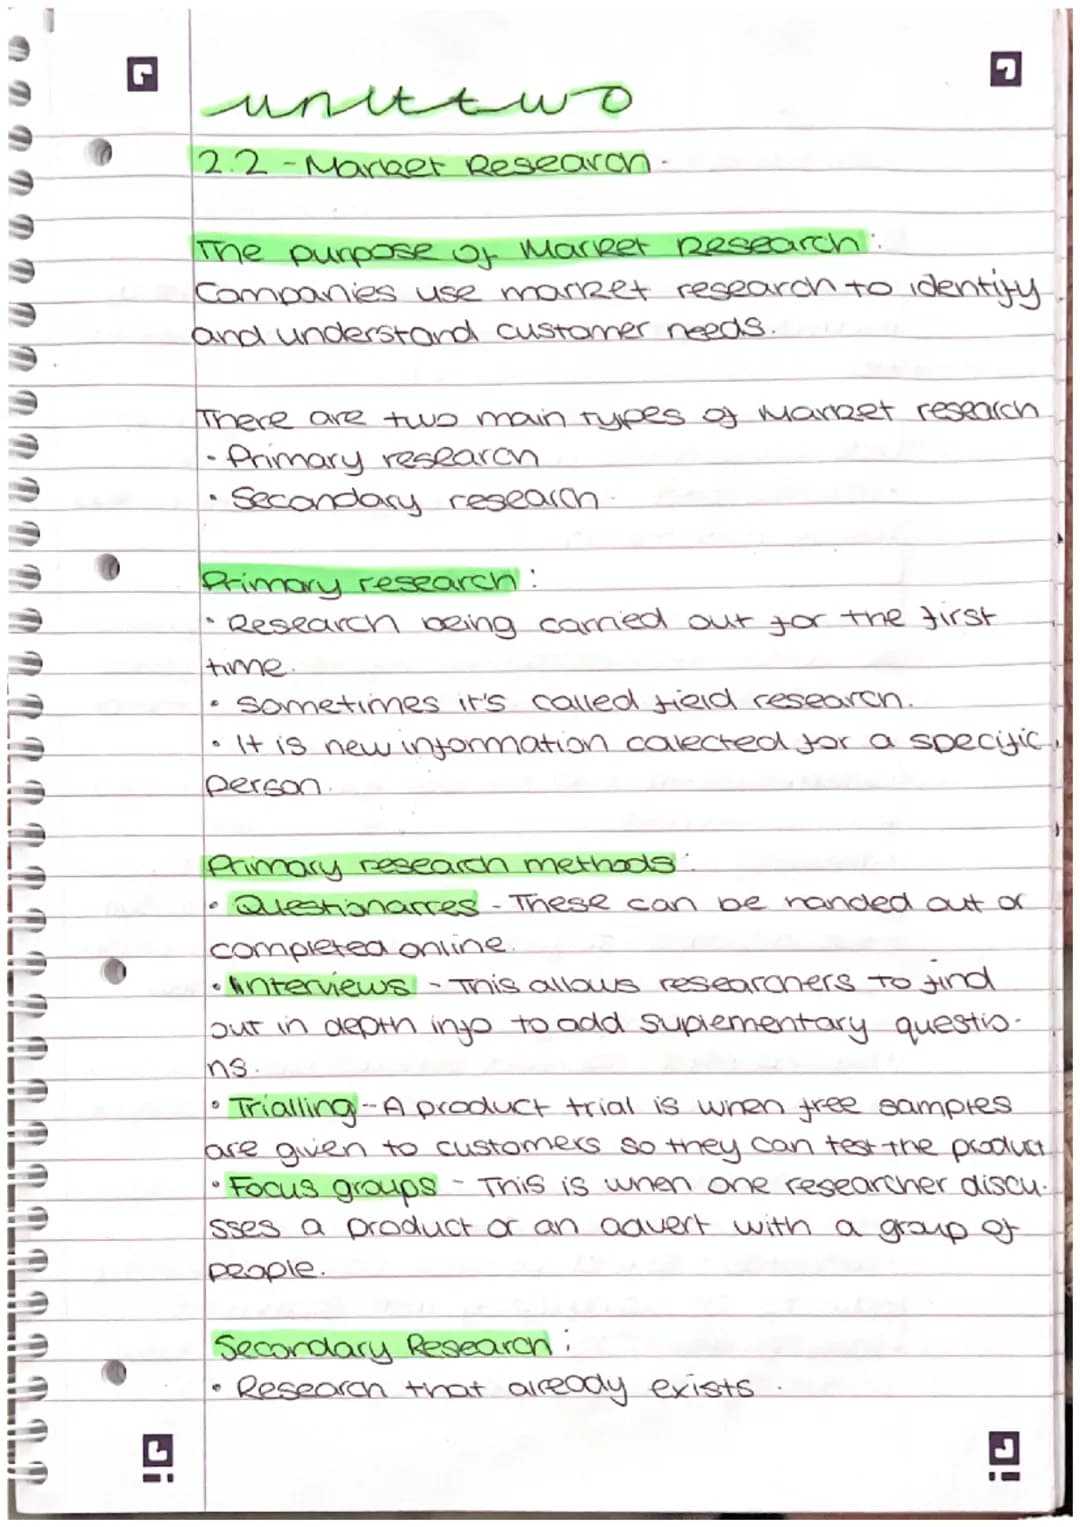 unit two
2.2 - Market Research.
The purpose of Market Research:
Companies use market research to identify
and understand customer needs.
There are two main types of Market research
• Primary research
• Secondary research.
Primary research:
• Research being carried out for the first
time.
• Sometimes it's called field research.
• It is new information colected for a specific
person.
Primary research methods:
• Questionarres - These can be handed out or
completed online.
• Interviews - This allows researchers to find
out in depth info to add suplementary questio-
ns.
• Trialling - A product trial is when free samples
are given to customers so they can test the product.
• Focus groups - This is when one researcher discu-
sses a product or an advert with a group of
people.
Secondary Research:
• Research that already exists.